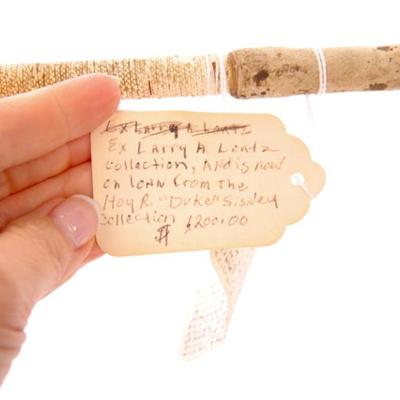 Ex Larry A Lentz
Ex Larry A Lentz
collection, And is now
on loan from the
Hoy R. "Duke" Sisney
Collection $200.00